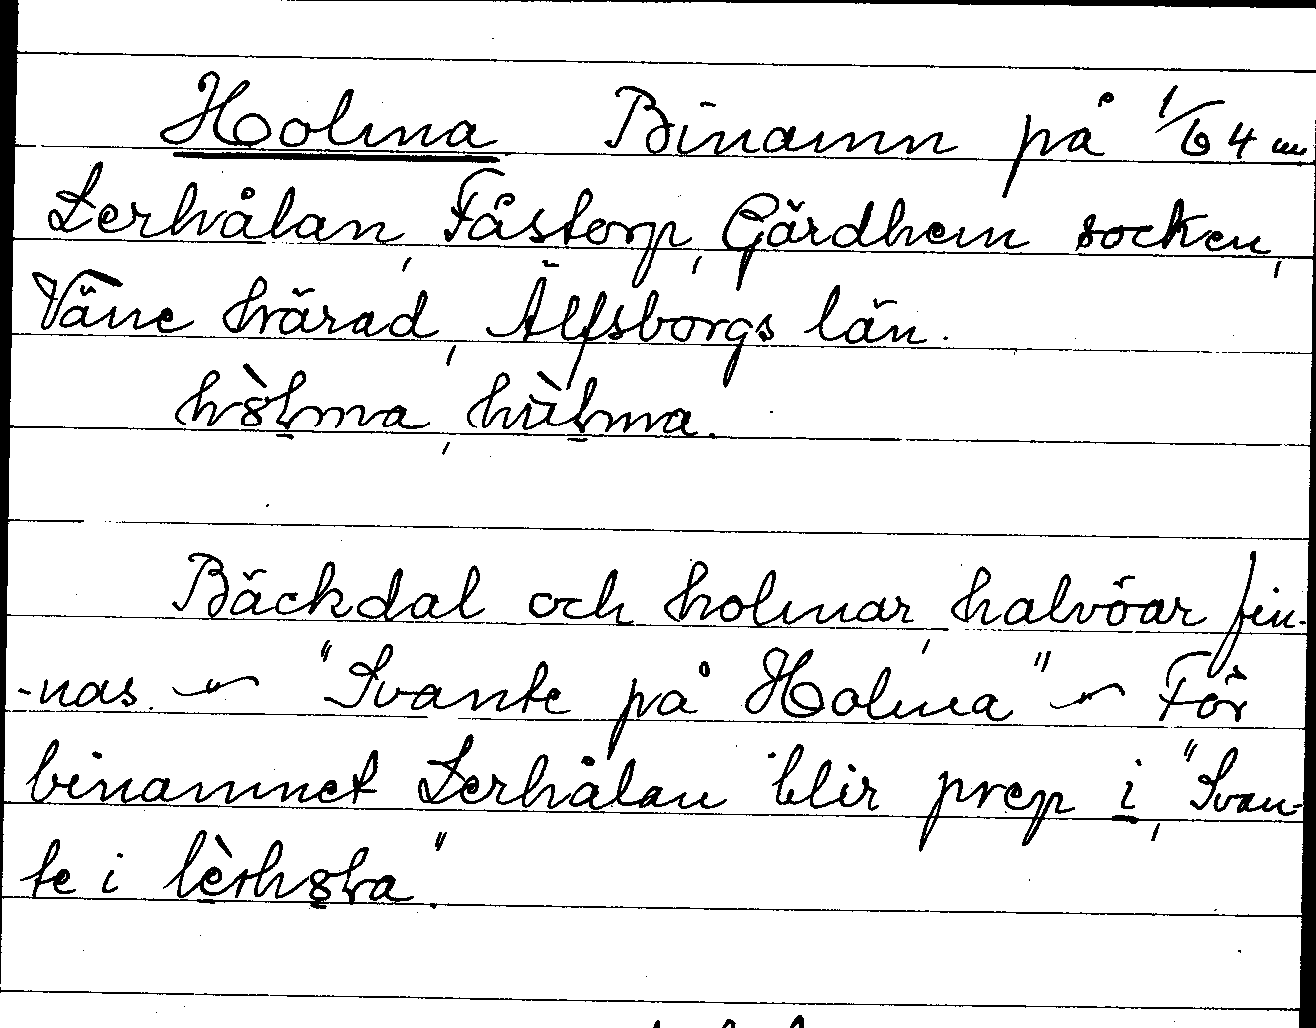 Holma Binamn på 1/64 m
Lerhålan, Fåstorp, Gärdhem socken,
Väne härad, Älfsborgs län.
hòlma, hùlma.
Bäckdal och holmar, halvöar fin-
-nas. ~ "Svante på Holma" ~ För
binamnet Lerhålan blir prep i, "Svan-
te i lèrhola".